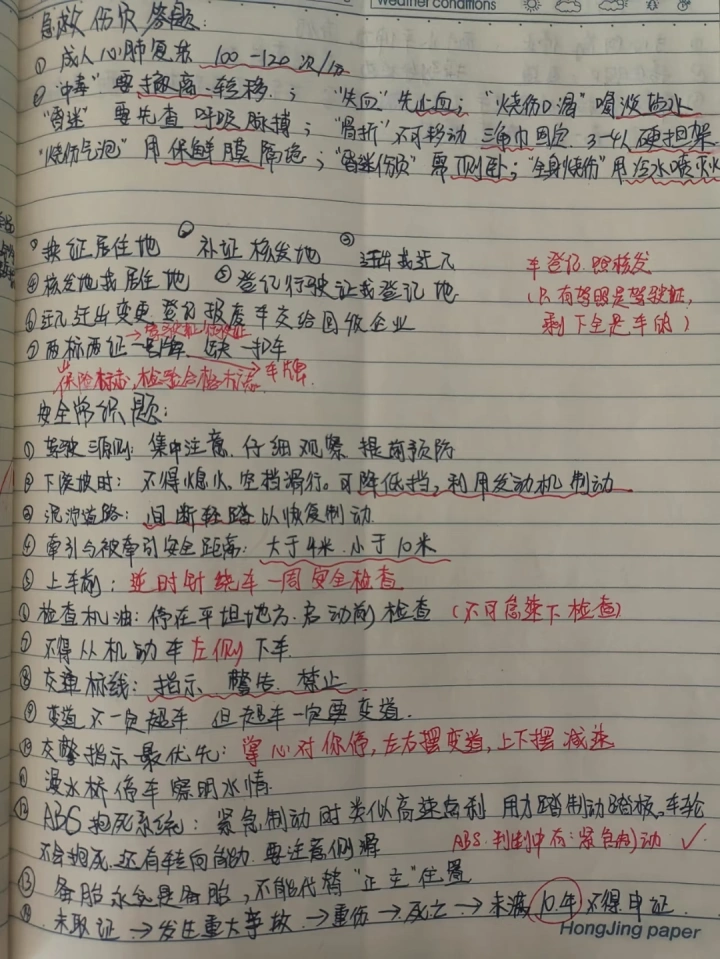 weather conditions
急救伤员答题：
① 成人心肺复苏 100-120次/分
② "中毒"要撤离.转移.； "失血"先止血； "烧伤口渴"喝淡盐水
"昏迷"要先查呼吸脉搏； "骨折"不可移动 三角巾固定. 3-4人硬担架
"烧伤气泡"用保鲜膜隔绝；"昏迷伤员"要侧卧；"全身烧伤"用冷水喷灭火
① 换证居住地 ② 补证核发地 ③ 迁出我迁入
④ 核发地我居住地 ⑤ 登记行驶证我登记地
⑥ 迁入迁出变更登记报废车交给回收企业
⑦ 两标两证一号牌 缺一扣车
车登记.照核发
（只有驾照是驾驶证，
剩下全是车的）
保险标志，检验合格标志 车牌
安全常识题：
① 驾驶三原则：集中注意.仔细观察 提前预防
② 下陡坡时：不得熄火、空挡滑行。可降低挡，利用发动机制动
③ 泥泞道路：间断轻踏以恢复制动
④ 牵引与被牵引安全距离：大于4米.小于10米
⑤ 上车前：逆时针绕车一周安全检查
⑥ 检查机油：停在平坦地方.启动前检查（不可怠速下检查）
⑦ 不得从机动车左侧下车
⑧ 交通标线：指示 警告 禁止
⑨ 变道不一定超车 但超车一定要变道.
⑩ 交警指示最优先：掌心对你停，左右摆变道，上下摆减速
⑪ 漫水桥停车察明水情
⑫ ABS抱死系统：紧急制动时 用力踏制动踏板，车轮
不会抱死.还有转向能力.要注意侧滑 ABS.判断中有：紧急制动 ✓
⑬ 备胎永远是备胎，不能代替"正主"位置
⑭ 未取证→发生重大事故→重伤→死亡→未满10年不得申证.
HongJing paper